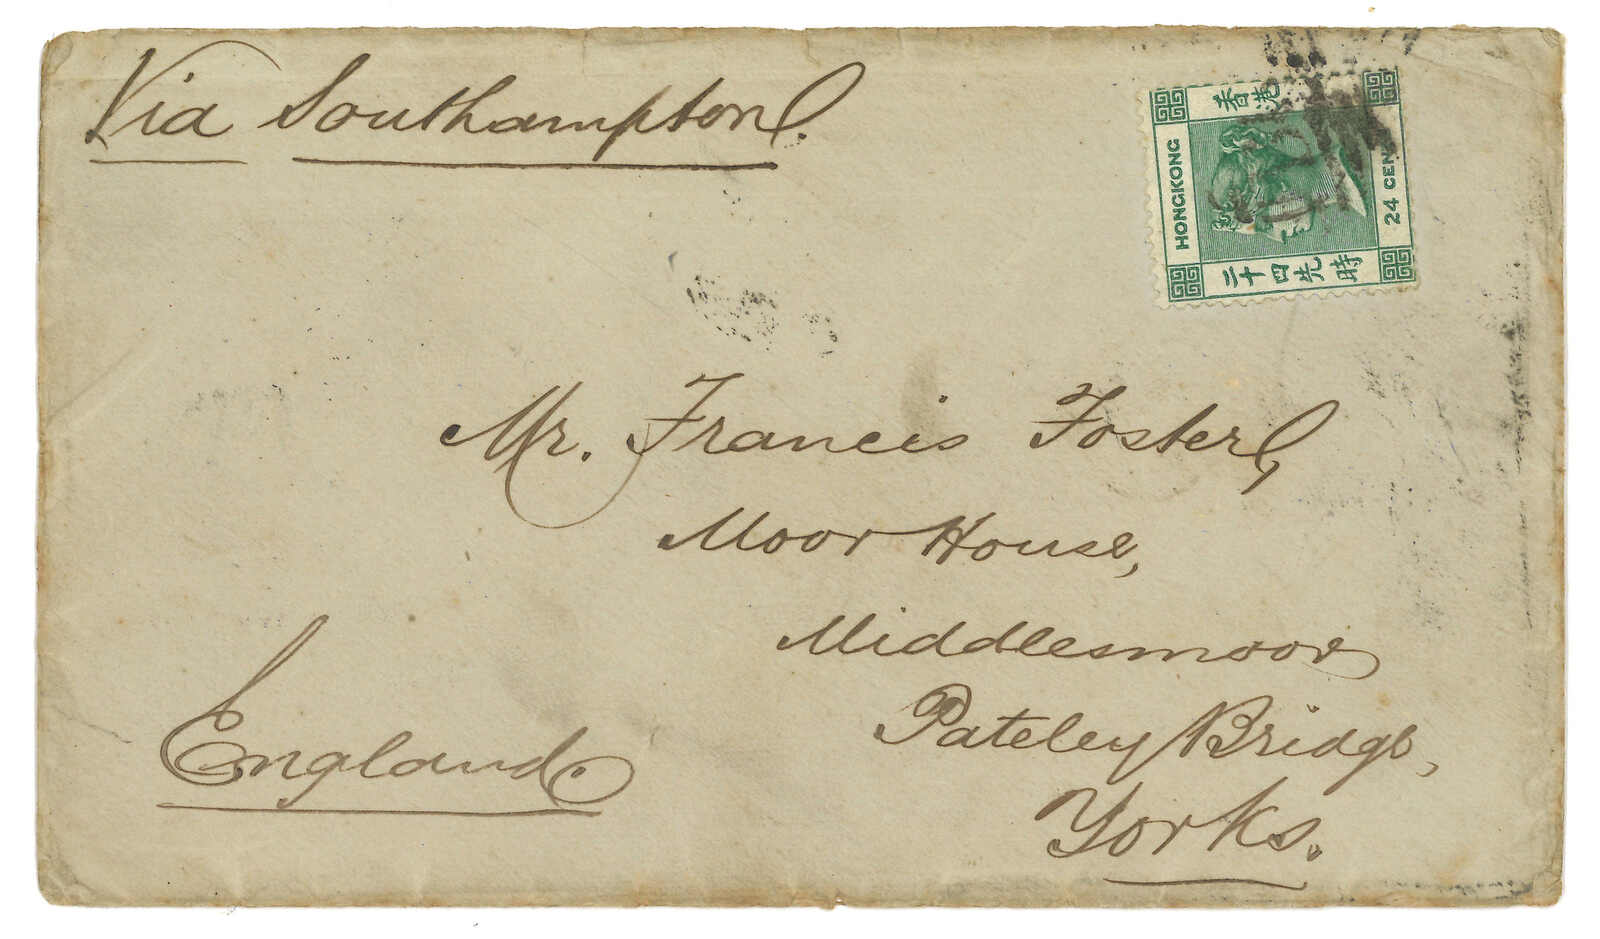 Via Southampton.
香港
HONGKONG
24 CEN
二十四先時
Mr. Francis Foster,
Moor House,
Middlesmoor
Pateley Bridge,
Yorks.
England